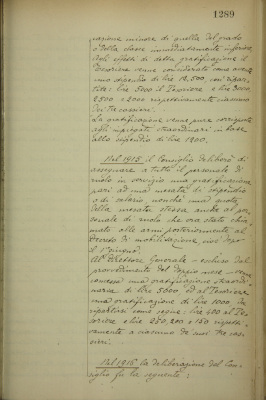 1289
nazione minore di quella del grado
o della classe immediatamente inferiore
Agli effetti di detta gratificazione il
Tesoriere venne considerato come avente
uno stipendio di lire 12,500, così ripar-
tite: lire 5000 il Tesoriere e lire 3000,
2500 e 2000 rispettivamente ciascuno
dei tre cassieri.
La gratificazione venne pure corrisposta
agli impiegati straordinari in base
allo stipendio di lire 1200.
Nel 1915, il Consiglio deliberò di
assegnare a tutto il personale di
ruolo in servizio una gratificazione
pari ad una mesata di stipendio
o di salario nonché una quota
della mesata stessa anche al per-
sonale di ruolo che era stato chia-
mato alle armi posteriormente al
decreto di mobilitazione cioè dopo
il 1° giugno.
Al Direttore Generale - escluso dal
provvedimento del doppio mese - venne
concessa una gratificazione straordi-
naria di lire 5000 ed al Tesoriere
una gratificazione di lire 1000 da
ripartirsi come segue: lire 400 al Te-
soriere e lire 250, 200 e 150 rispetti-
vamente a ciascuno dei suoi tre cas-
sieri.
Nel 1916 la deliberazione del Con-
siglio fu la seguente: